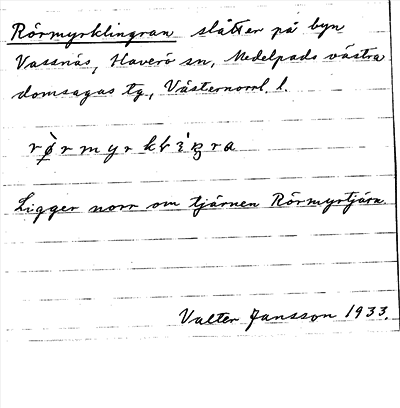 Rörmyrklingran slåtter på byn
Vassnäs, Haverö sn, Medelpads västra
domsagas tg., Västernorrl. l.
Ligger norr om tjärnen Rörmyrtjärn
Valter Jansson 1933.